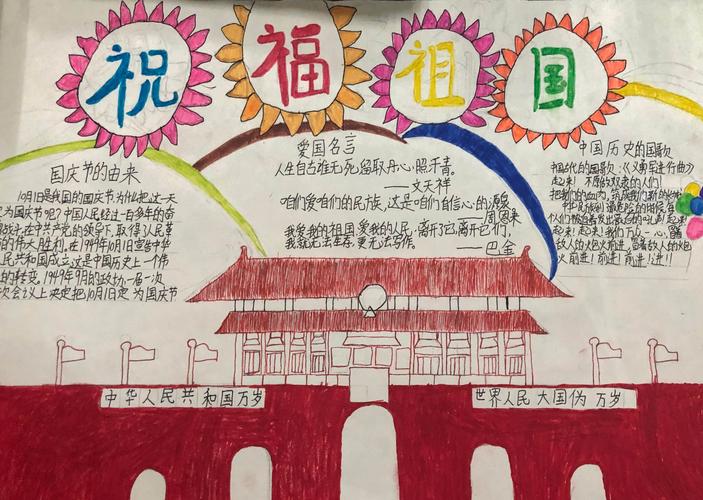 祝福祖国
国庆节的由来
10月1日是我国的国庆节为什么把这一天
为国庆节呢?中国人民经过一百多年的奋
战斗,在中共产党的领导下,取得了人民革
的伟大胜利,在1949年10月1日宣告中华
民共和国成立这是中国历史上一个伟
的转变。1949年9月的政协一届一次
会议上决定把10月1日定为国庆节
爱国名言
人生自古谁无死,留取丹心照汗青。
——文天祥
咱们爱咱们的民族,这是咱们自信心的源泉
——周恩来
我爱我的祖国,爱我的人民,离开了它,离开它们,
我就无法生存,更无法写作。
——巴金
中国历史的国歌
中国代的国歌:《义勇军进行曲》
起来!不愿做奴隶的人们!
把我们的血肉,筑成我们新的长城
起来!起来!我们万众一心,冒着
敌人的炮火前进!冒着敌人的炮
火前进!前进!前进!进!!
中华人民共和国万岁
世界人民大国伪万岁